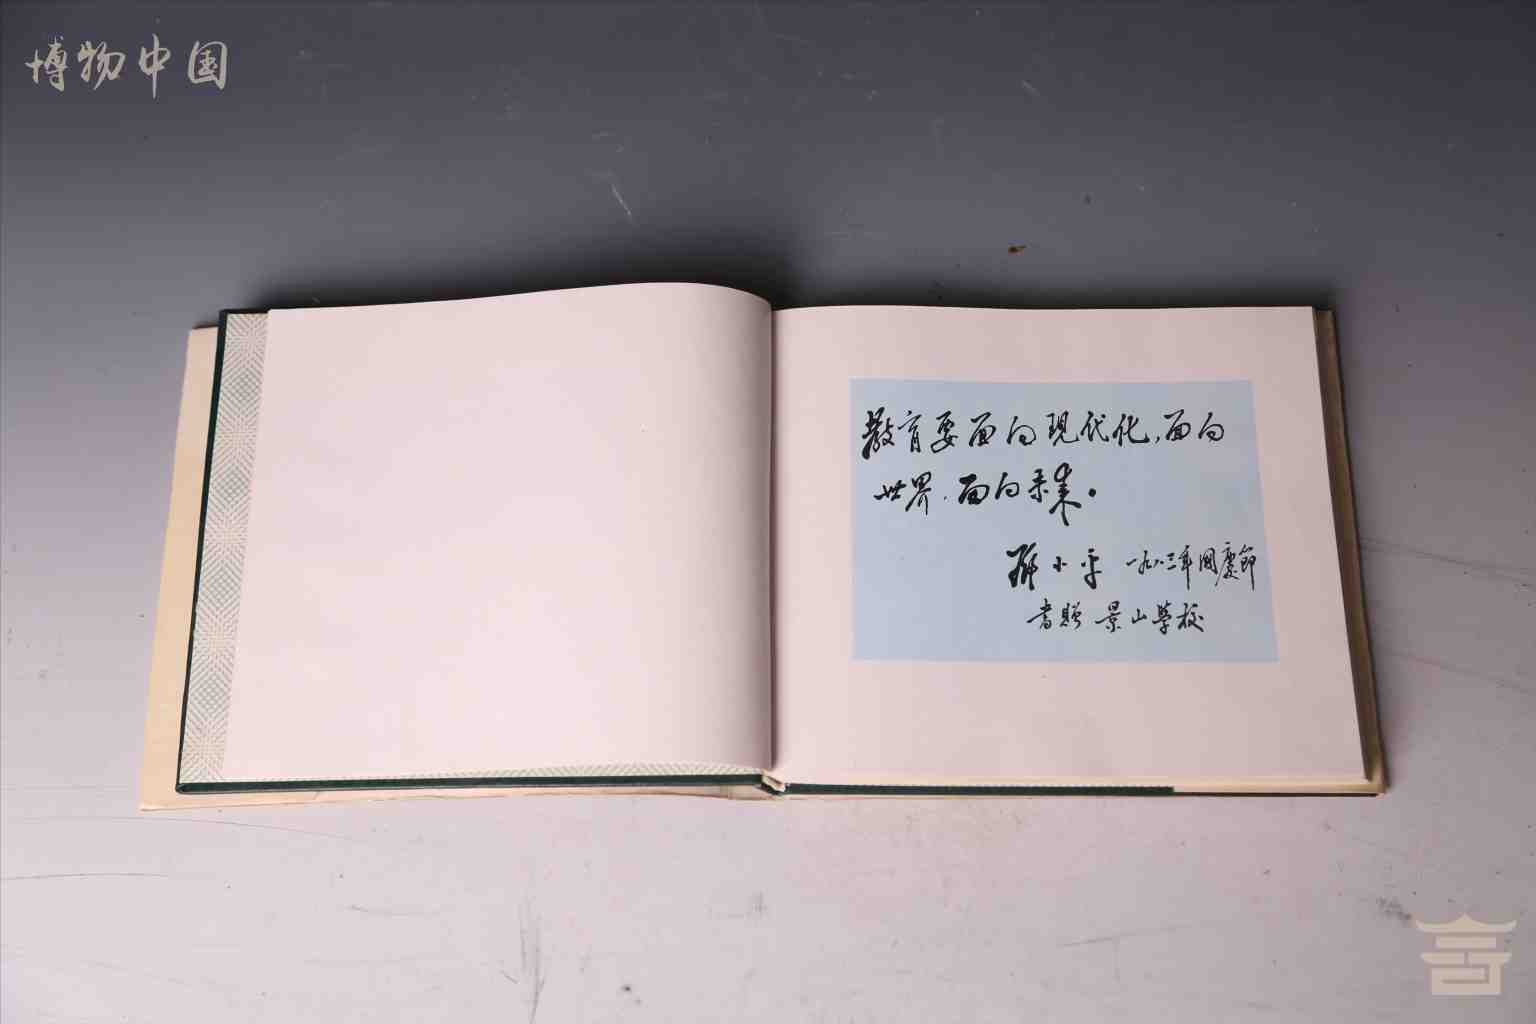 博物中国
教育要面向现代化,面向
世界,面向未来。
邓小平 一九八三年國慶節
書贈 景山學校